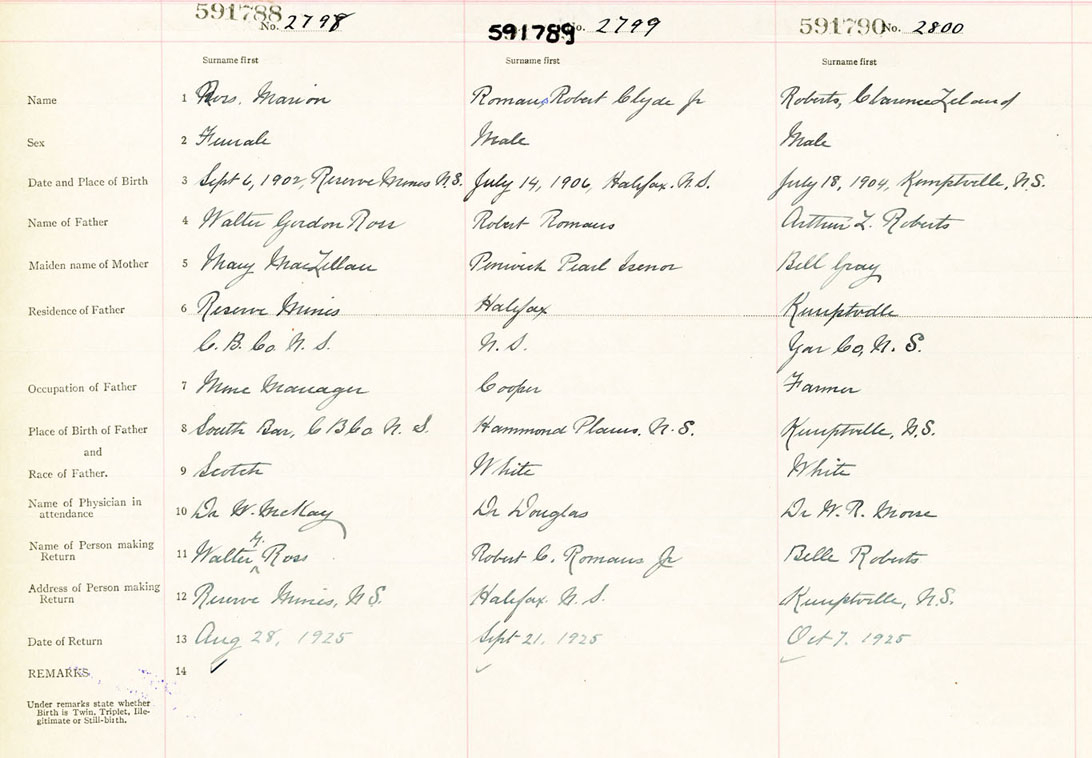 591788 No. 2798
591789 No. 2799
591790 No. 2800
Surname first Surname first Surname first
Name 1 Ross, Marion Romans, Robert Clyde Jr Roberts, Clarence Leland
Sex 2 Female Male Male
Date and Place of Birth 3 Sept 6, 1902, Reserve Mines N.S. July 14, 1906, Halifax. N.S. July 18, 1904, Kemptville, N.S.
Name of Father 4 Walter Gordon Ross Robert Romans Arthur L. Roberts
Maiden name of Mother 5 Mary MacLellan Pearl Isenor Bell Gray
Residence of Father 6 Reserve Mines Halifax Kemptville
C. B. Co. N. S. N. S. Yar Co, N. S.
Occupation of Father 7 Mine Manager Cooper Farmer
Place of Birth of Father 8 South Bar, C B Co N. S. Hammond Plains, N. S. Kemptville, N.S.
and
Race of Father. 9 Scotch White White
Name of Physician in
attendance 10 Dr W. McKay Dr Douglas Dr W. R. Morse
Name of Person making
Return 11 Walter G. Ross Robert C. Romans Jr Belle Roberts
Address of Person making
Return 12 Reserve Mines, N.S. Halifax. N. S. Kemptville, N.S.
Date of Return 13 Aug 28, 1925 Sept 21, 1925 Oct 7, 1925
REMARKS 14
Under remarks state whether
Birth is Twin, Triplet, Ille-
gitimate or Still-birth.